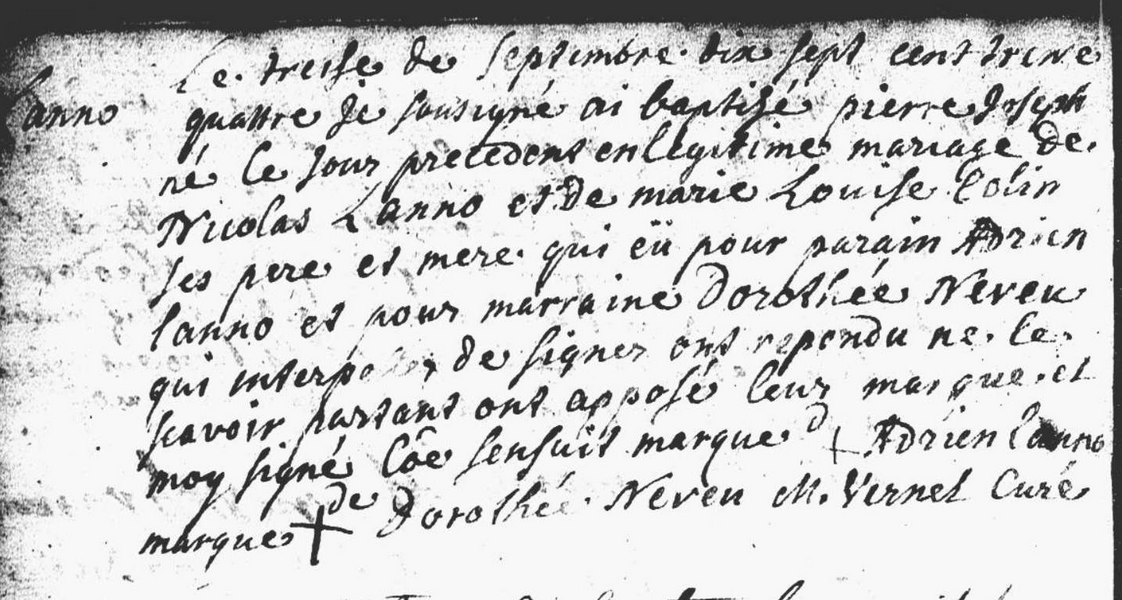 Le treise de Septembre dix sept cent trente
Lanno
quattre Je sousigné ai baptisé pierre Joseph
né le Jour precedent en legitime mariage de
Nicolas Lanno et de marie Louise Colin
ses pere et mere qui eü pour parain Adrien
lanno et pour marraine Dorothée Neveu
qui interpo de signer ont repondu ne le
scavoir partant ont apposé leur marque et
moy signé Côe sensuit marque d + Adrien lanno
marque + de Dorothée Neveu M. Vernel Curé